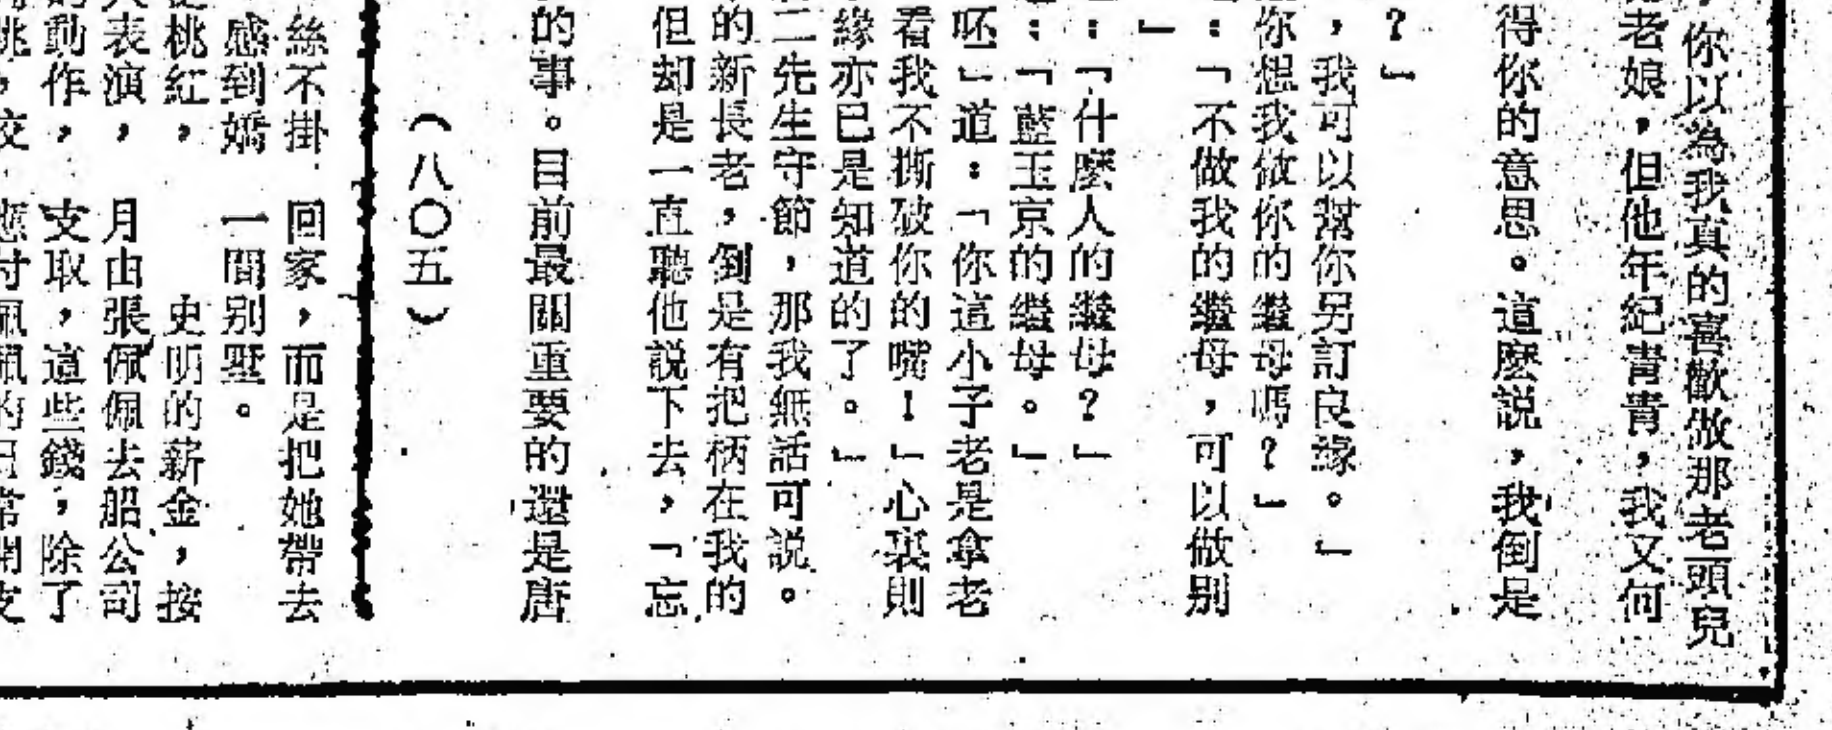 你以為我真的喜歡做那老頭兒
老娘，但他年紀青青，我又何
得你的意思。這麼説，我倒是
？」
，我可以幫你另訂良緣。」
你想我做你的繼母嗎？」
：「不做我的繼母，可以做別
」
：「什麼人的繼母？」
：「藍玉京的繼母。」
呸」道：「你這小子老是拿老
看我不撕破你的嘴！」心裏則
緣亦已是知道的了。」
二先生守節，那我無話可説。
的新長老，倒是有把柄在我的
但却是一直聽他説下去，「忘
的事。目前最關重要的還是唐
（八〇五）
絲不掛
感到嬌
桃紅，
表演，
動作，
回家，而是把她帶去
一間別墅。
史明的薪金，按
月由張佩佩去船公司
支取，這些錢，除了